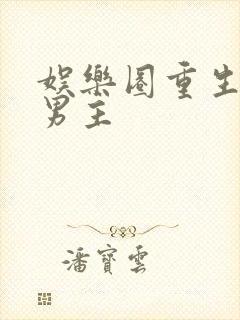 娛樂圈重生
男主
潘寶雲